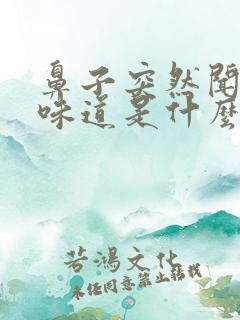 鼻子突然闻
味道是什么
若鸿文化
未经同意禁止转载